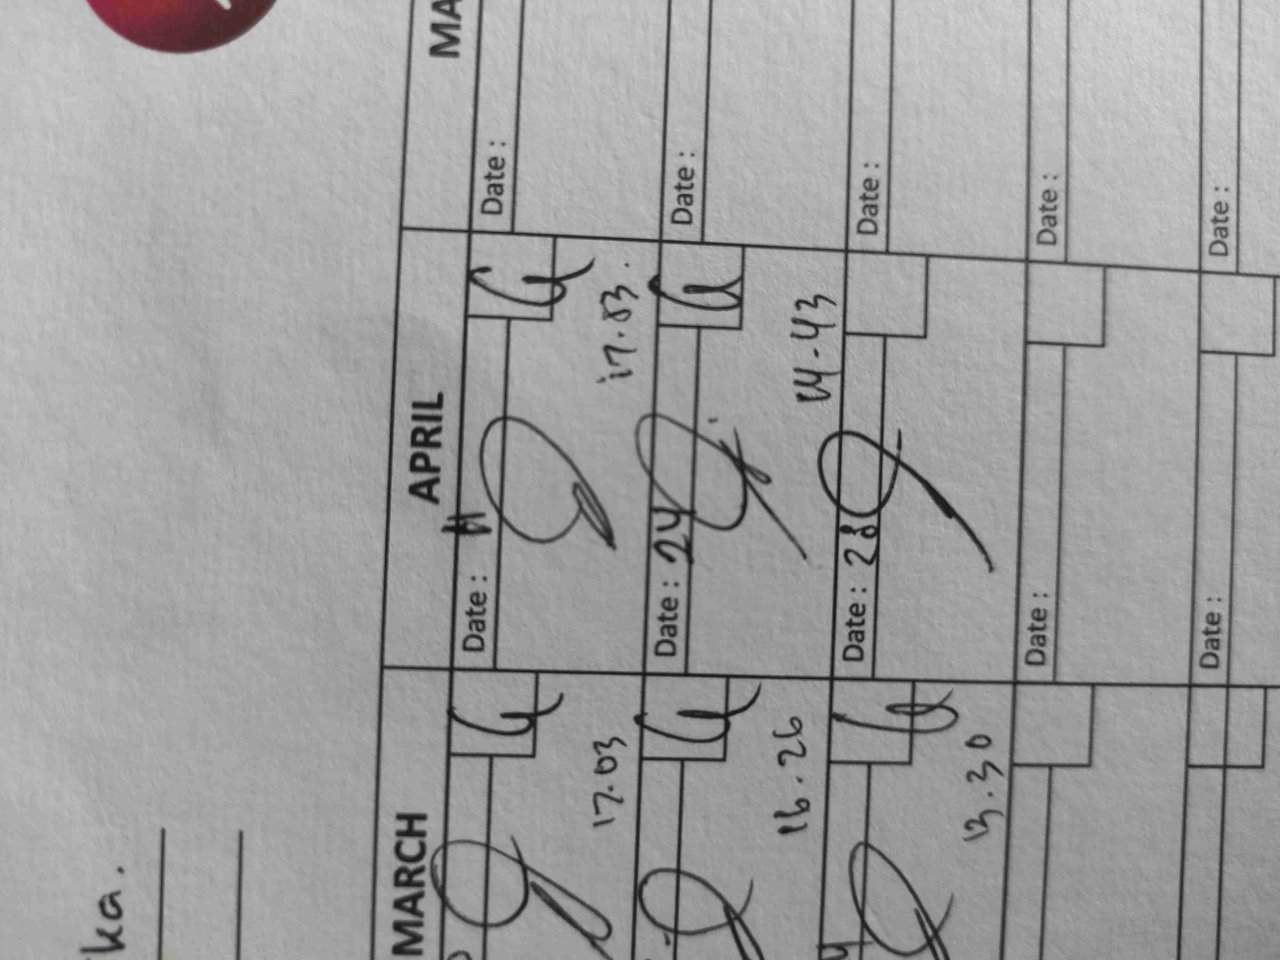 ka.
MARCH
APRIL
MA
Date :
Date :
Date : 24
Date :
Date : 28
Date :
Date :
Date :
Date :
Date :
17.03
17.03.
16.26
14.43
13.30